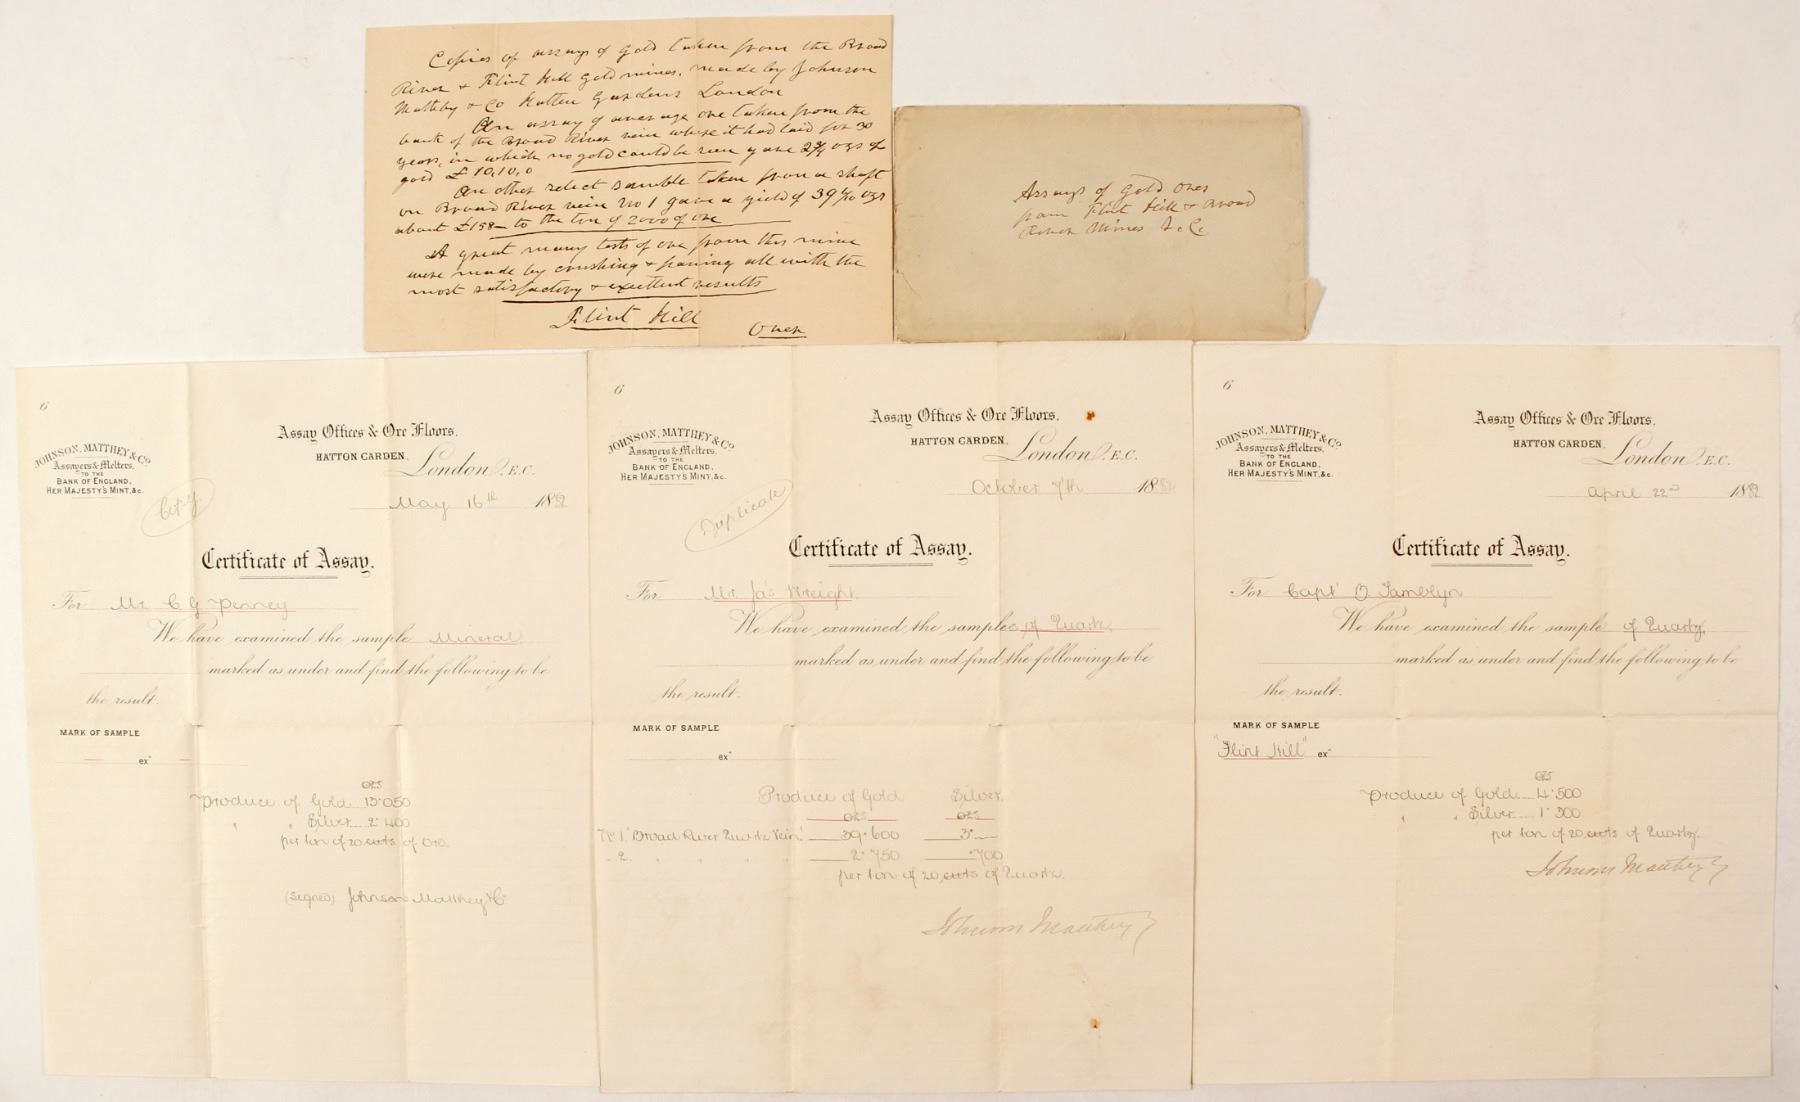 Copies of assays of Gold taken from the Broad
River & Flint Hill Gold mines, made by Johnson
Matthey & Co Hatton Gardens London
An assay of average ore taken from the
bank of the Broad River vein where it had laid for 30
years, in which no gold could be seen gave 2¾ ozs of
gold £10,10,0
An other select sample taken from a shaft
on Broad River vein No 1 gave a yield of 39 6/10 ozs
about £158 to the ton of 2000 of ore
A great many tests of ore from this mine
were made by crushing & panning all with the
most satisfactory & excellent results
Flint Hill
Over
Assays of Gold Ores
from Flint Hill & Broad
River Mines
6
JOHNSON, MATTHEY & Co
Assayers & Melters,
TO THE
BANK OF ENGLAND,
HER MAJESTY'S MINT, &c.
Copy
Assay Offices & Ore Floors.
HATTON GARDEN.
London, E.C.
May 16th 1882
Certificate of Assay.
For Mr C G Penney
We have examined the sample Mineral
marked as under and find the following to be
the result.
MARK OF SAMPLE
— ex" —
ozs
Produce of Gold 13.050
" " Silver 2.400
per ton of 20 cwts of Ore.
(signed) Johnson Matthey & Co
6
JOHNSON, MATTHEY & Co
Assayers & Melters,
TO THE
BANK OF ENGLAND,
HER MAJESTY'S MINT, &c.
Duplicate
Assay Offices & Ore Floors.
HATTON GARDEN.
London, E.C.
October 7th 188
Certificate of Assay.
For Mr. Jas Wreight.
We have examined the samples of Quartz
marked as under and find the following to be
the result.
MARK OF SAMPLE
ex"
Produce of Gold Silver.
ozs ozs
No 1 "Broad River Quartz Vein" 39.600 3.—
" 2. " " " " 2.750 .700
per ton of 20 cwts of Quartz.
Johnson Matthey
6
JOHNSON, MATTHEY & Co
Assayers & Melters,
TO THE
BANK OF ENGLAND,
HER MAJESTY'S MINT, &c.
Assay Offices & Ore Floors.
HATTON GARDEN.
London, E.C.
April 22nd 1882
Certificate of Assay.
For Capt O Tamblyn
We have examined the sample of Quartz
marked as under and find the following to be
the result.
MARK OF SAMPLE
"Flint Hill" ex"
ozs
Produce of Gold 4.500
" " Silver 1.300
per ton of 20 cwts of Quartz.
Johnson Matthey